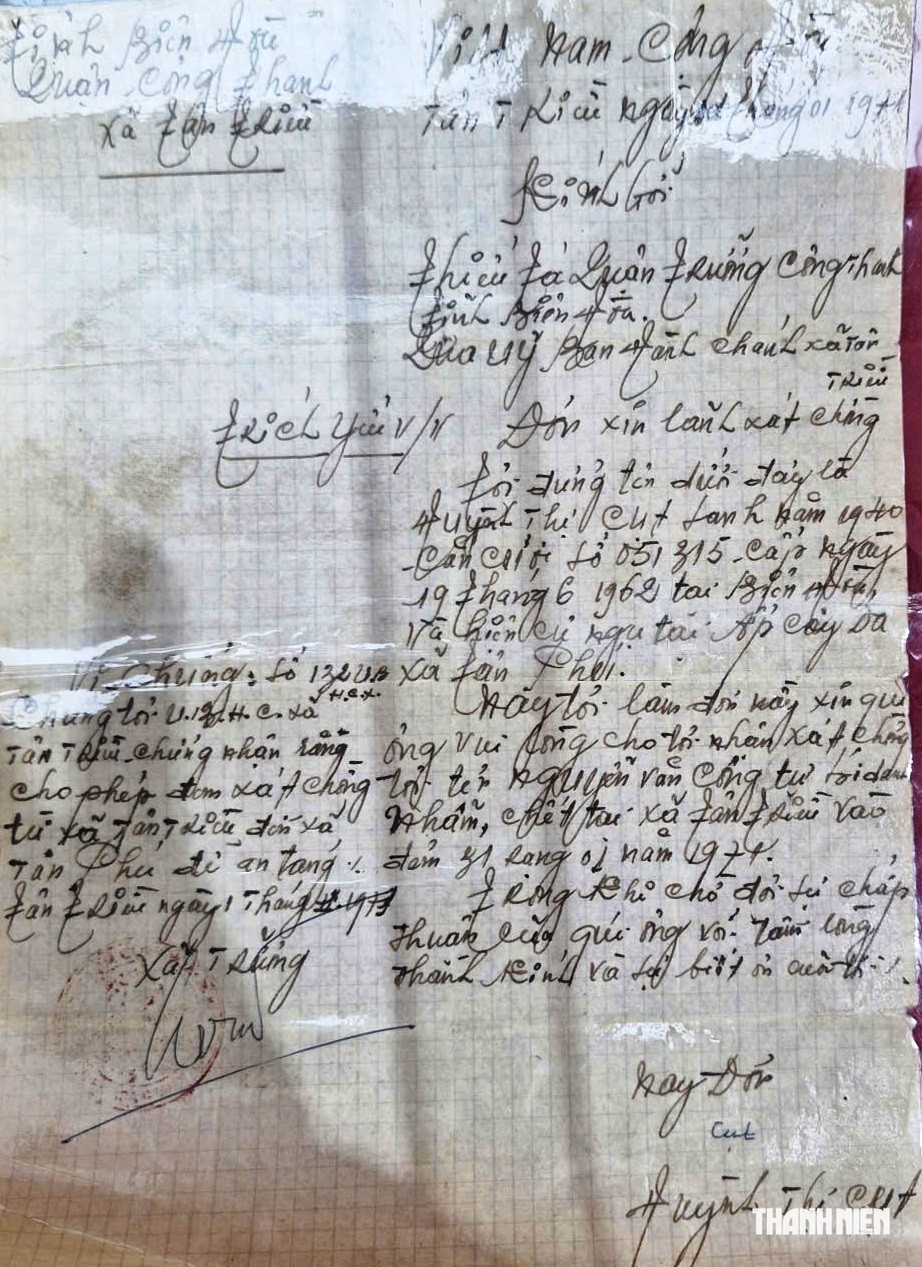 Tỉnh Biên Hòa
Quận Công Thanh
Xã Tân Triều
Việt Nam Cộng Hòa
Tân Triều ngày tháng 01 1971
Kính Gởi
Thiếu Tá Quận Trưởng Công Thanh
Tỉnh Biên Hòa.
Qua Uỷ Ban Hành chánh xã Tân
Triều
Trích yếu V/V Đơn xin lãnh xát chồng
Tôi đứng tên dưới đây là
Huỳnh Thị Cut sanh năm 1940
Căn cước số 051315 cấp ngày
19 tháng 6 1962 tại Biên Hòa
Và hiện cư ngụ tại Ấp Cây Da
xã Tân Phú.
Nay tôi làm đơn nầy xin quí
ông vui lòng cho tôi nhận xát chồng
tôi tên Nguyễn văn Công tự
Nhẫm, chết tại xã Tân Triều vào
đêm 31 rạng 01 năm 1971.
Trong khi chờ đợi sự chấp
thuận của quí ông với tấm lòng
thành kính và sự biết ơn
Nay Đơn
Cut
Huỳnh Thị Cut
Vi Chứng: Số 132UB
H.C.X.
Chúng tôi U.B.H.C. xã
Tân Triều chứng nhận rằng
cho phép đem xát chồng
từ xã Tân Triều đến xã
Tân Phú để an táng ./.
Tân Triều ngày 1 Tháng 1971
Xã Trưởng
THANH NIÊN